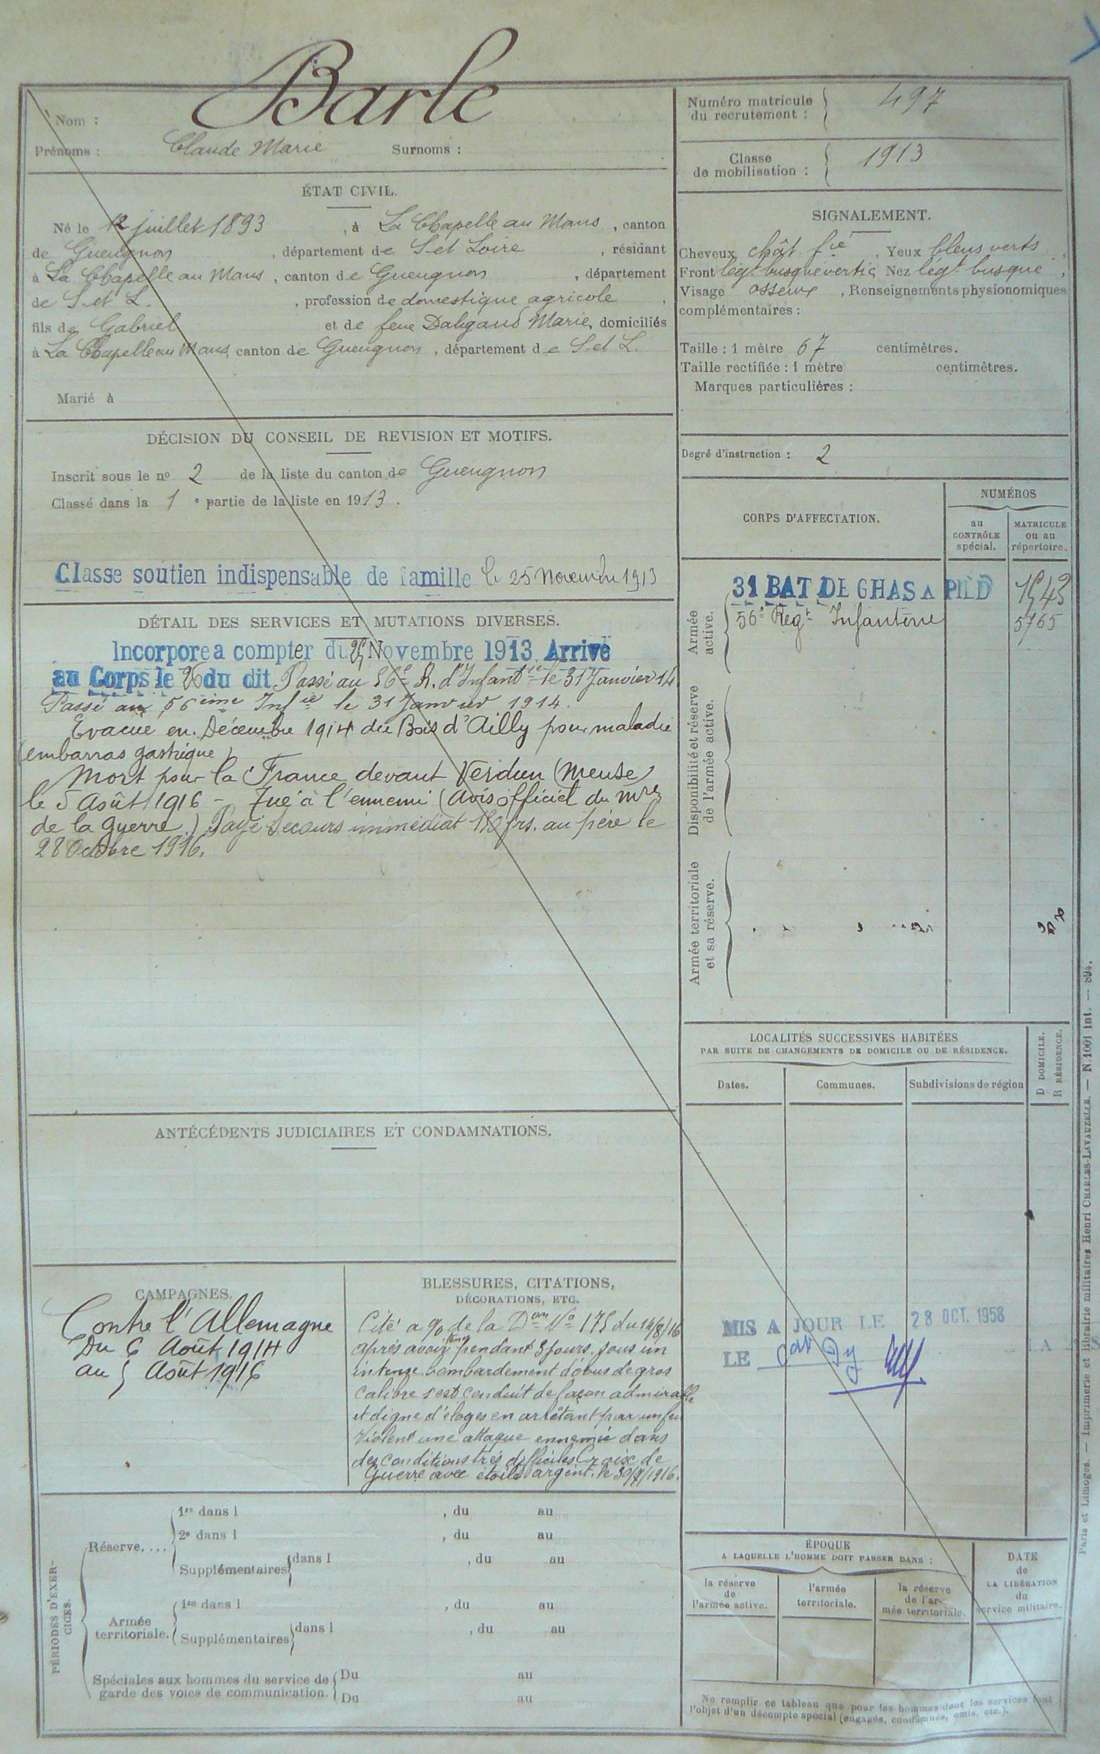 Nom : Barle
Prénoms : Claude Marie Surnoms :
ÉTAT CIVIL.
Né le 12 juillet 1893, à La Chapelle au Mans, canton
de Gueugnon, département de S et Loire, résidant
à La Chapelle au Mans, canton de Gueugnon, département
de S. et L., profession de domestique agricole,
fils de Gabriel et de feue Daligand Marie, domiciliés
à La Chapelle au Mans, canton de Gueugnon, département de S. et L.
Marié à
DÉCISION DU CONSEIL DE REVISION ET MOTIFS.
Inscrit sous le nº 2 de la liste du canton de Gueugnon
Classé dans la 1e partie de la liste en 1913.
Classe soutien indispensable de famille le 25 Novembre 1913
DÉTAIL DES SERVICES ET MUTATIONS DIVERSES.
Incorpore a compter du Novembre 1913. Arrivé
au Corps le du dit. Passé au 56e R. d'Infantie le 31 Janvier 14
Passé au 56ème Infie le 31 Janvier 1914.
Evacué en Décembre 1914 du Bois d'Ailly pour maladie
(embarras gastrique)
Mort pour la France devant Verdun (Meuse)
le 5 Août 1916 - Tué à l'ennemi (avis officiel du Mre
de la guerre) Payé Secours immédiat 150 frs. au père le
28 Octobre 1916.
ANTÉCÉDENTS JUDICIAIRES ET CONDAMNATIONS.
CAMPAGNES.
Contre l'Allemagne
Du 6 Août 1914
au 5 Août 1916
BLESSURES, CITATIONS,
DÉCORATIONS, ETC.
Cité à l'o/ de la Don No 175 du 14/8/16
après avoir tenu pendant 3 jours, sous un
intense bombardement d'obus de gros
calibre s'est conduit de façon admirable
et digne d'éloges en arrêtant par un feu
violent une attaque ennemie dans
des conditions très difficiles Croix de
Guerre avec étoile argent.
PÉRIODES D'EXERCICES.
Réserve....
1re dans l , du au
2e dans l , du au
Supplémentaires dans l , du au
Armée territoriale.
1re dans l , du au
Supplémentaires dans l , du au
Spéciales aux hommes du service de Du au
garde des voies de communication. Du au
Numéro matricule
du recrutement : 497
Classe
de mobilisation : 1913
SIGNALEMENT.
Cheveux chât. fcé, Yeux bleus verts,
Front légt busqué verti, Nez légt busqué,
Visage osseux, Renseignements physionomiques
complémentaires :
Taille : 1 mètre 67 centimètres.
Taille rectifiée : 1 mètre centimètres.
Marques particulières :
Degré d'instruction : 2
CORPS D'AFFECTATION.
NUMÉROS
au
CONTRÔLE
spécial.
MATRICULE
ou au
répertoire.
Armée
active.
31 BAT DE CHAS A PIED
56e Regt Infanterie 5765
Disponibilité et réserve
de l'armée active.
Armée territoriale
et sa réserve.
LOCALITÉS SUCCESSIVES HABITÉES
PAR SUITE DE CHANGEMENTS DE DOMICILE OU DE RÉSIDENCE.
Dates. Communes. Subdivisions de région
D DOMICILE.
R RÉSIDENCE.
MIS A JOUR LE 28 OCT. 1958
LE
ÉPOQUE
A LAQUELLE L'HOMME DOIT PASSER DANS :
la réserve
de
l'armée active.
l'armée
territoriale.
la réserve
de l'armée territoriale.
DATE
de
LA LIBÉRATION
du
service militaire.
Ne remplir ce tableau que pour les hommes dont les services font
l'objet d'un décompte spécial (engagés, condamnés, omis, etc.).
Paris et Limoges. — Imprimerie et librairie militaires Henri CHARLES-LAVAUZELLE. — N. 1001 int. — 894.